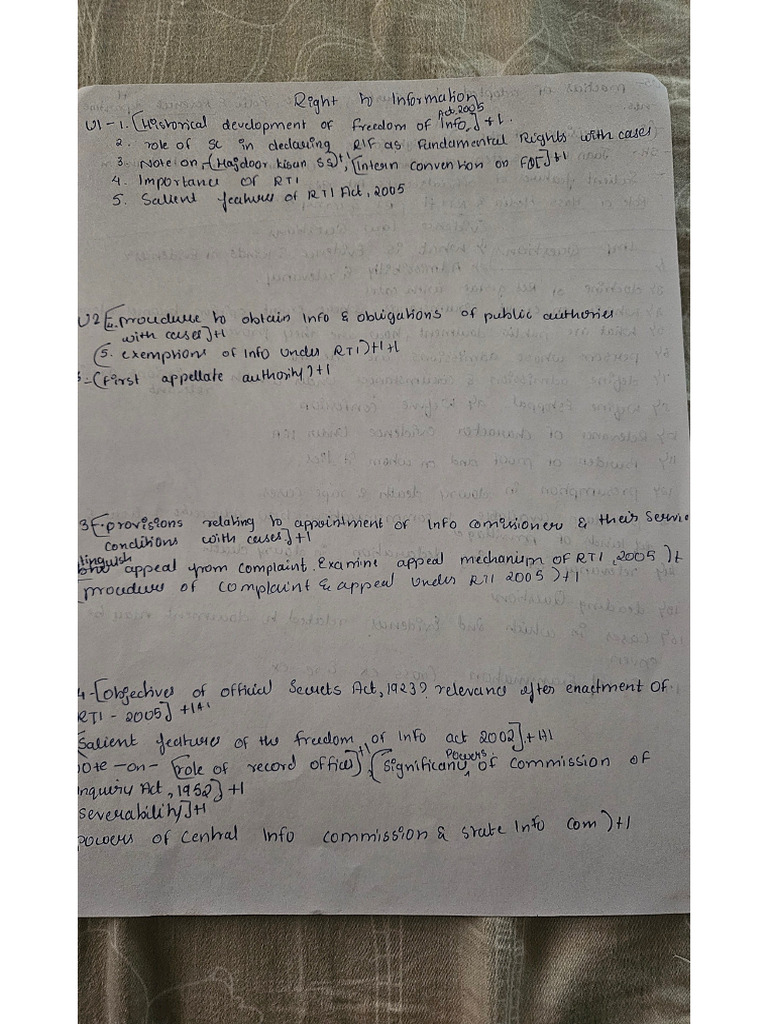 Right to Information
Act, 2005
U1 - 1. [Historical development of freedom of Info.] +1.
2. role of SC in declaring RIF as Fundamental Rights with cases
3. Note on - [Majdoor Kisan SS]+1, [Intern convention on FOI]+1
4. Importance of RTI
5. Salient features of RTI Act, 2005
U2 [4. proceduure to obtain Info & obligations of public authories
with cases]+1
(5. exemptions of Info under RTI)+1+1
- (First appellate authority)+1
3 [. provisions relating to appointment of Info comissioners & their service
conditions with cases]+1
tinguish
appeal from complaint. Examine appeal mechanism of RTI, 2005)+
[procedures of complaint & appeal under RTI 2005)+1
4 - [Objectives of official Secrets Act, 1923? relevance after enactment of
RTI - 2005] +1+1
[Salient features of the freedom of Info act 2002].+1+1
ote - on - [role of record offices]+1, [significany powers of commission of
nquiry Act, 1952] +1
severability]+1
powers of Central Info commission & state Info com)+1